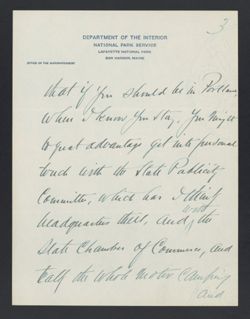 3
DEPARTMENT OF THE INTERIOR
NATIONAL PARK SERVICE
LAFAYETTE NATIONAL PARK
BAR HARBOR, MAINE
OFFICE OF THE SUPERINTENDENT
that if you should be in Portland
when I know you stay. You might
to great advantage get into personal
touch with the State Publicity
Committee, which has I think
headquarters there, and with the
State Chamber of Commerce, and
talk the whole motor camping
and